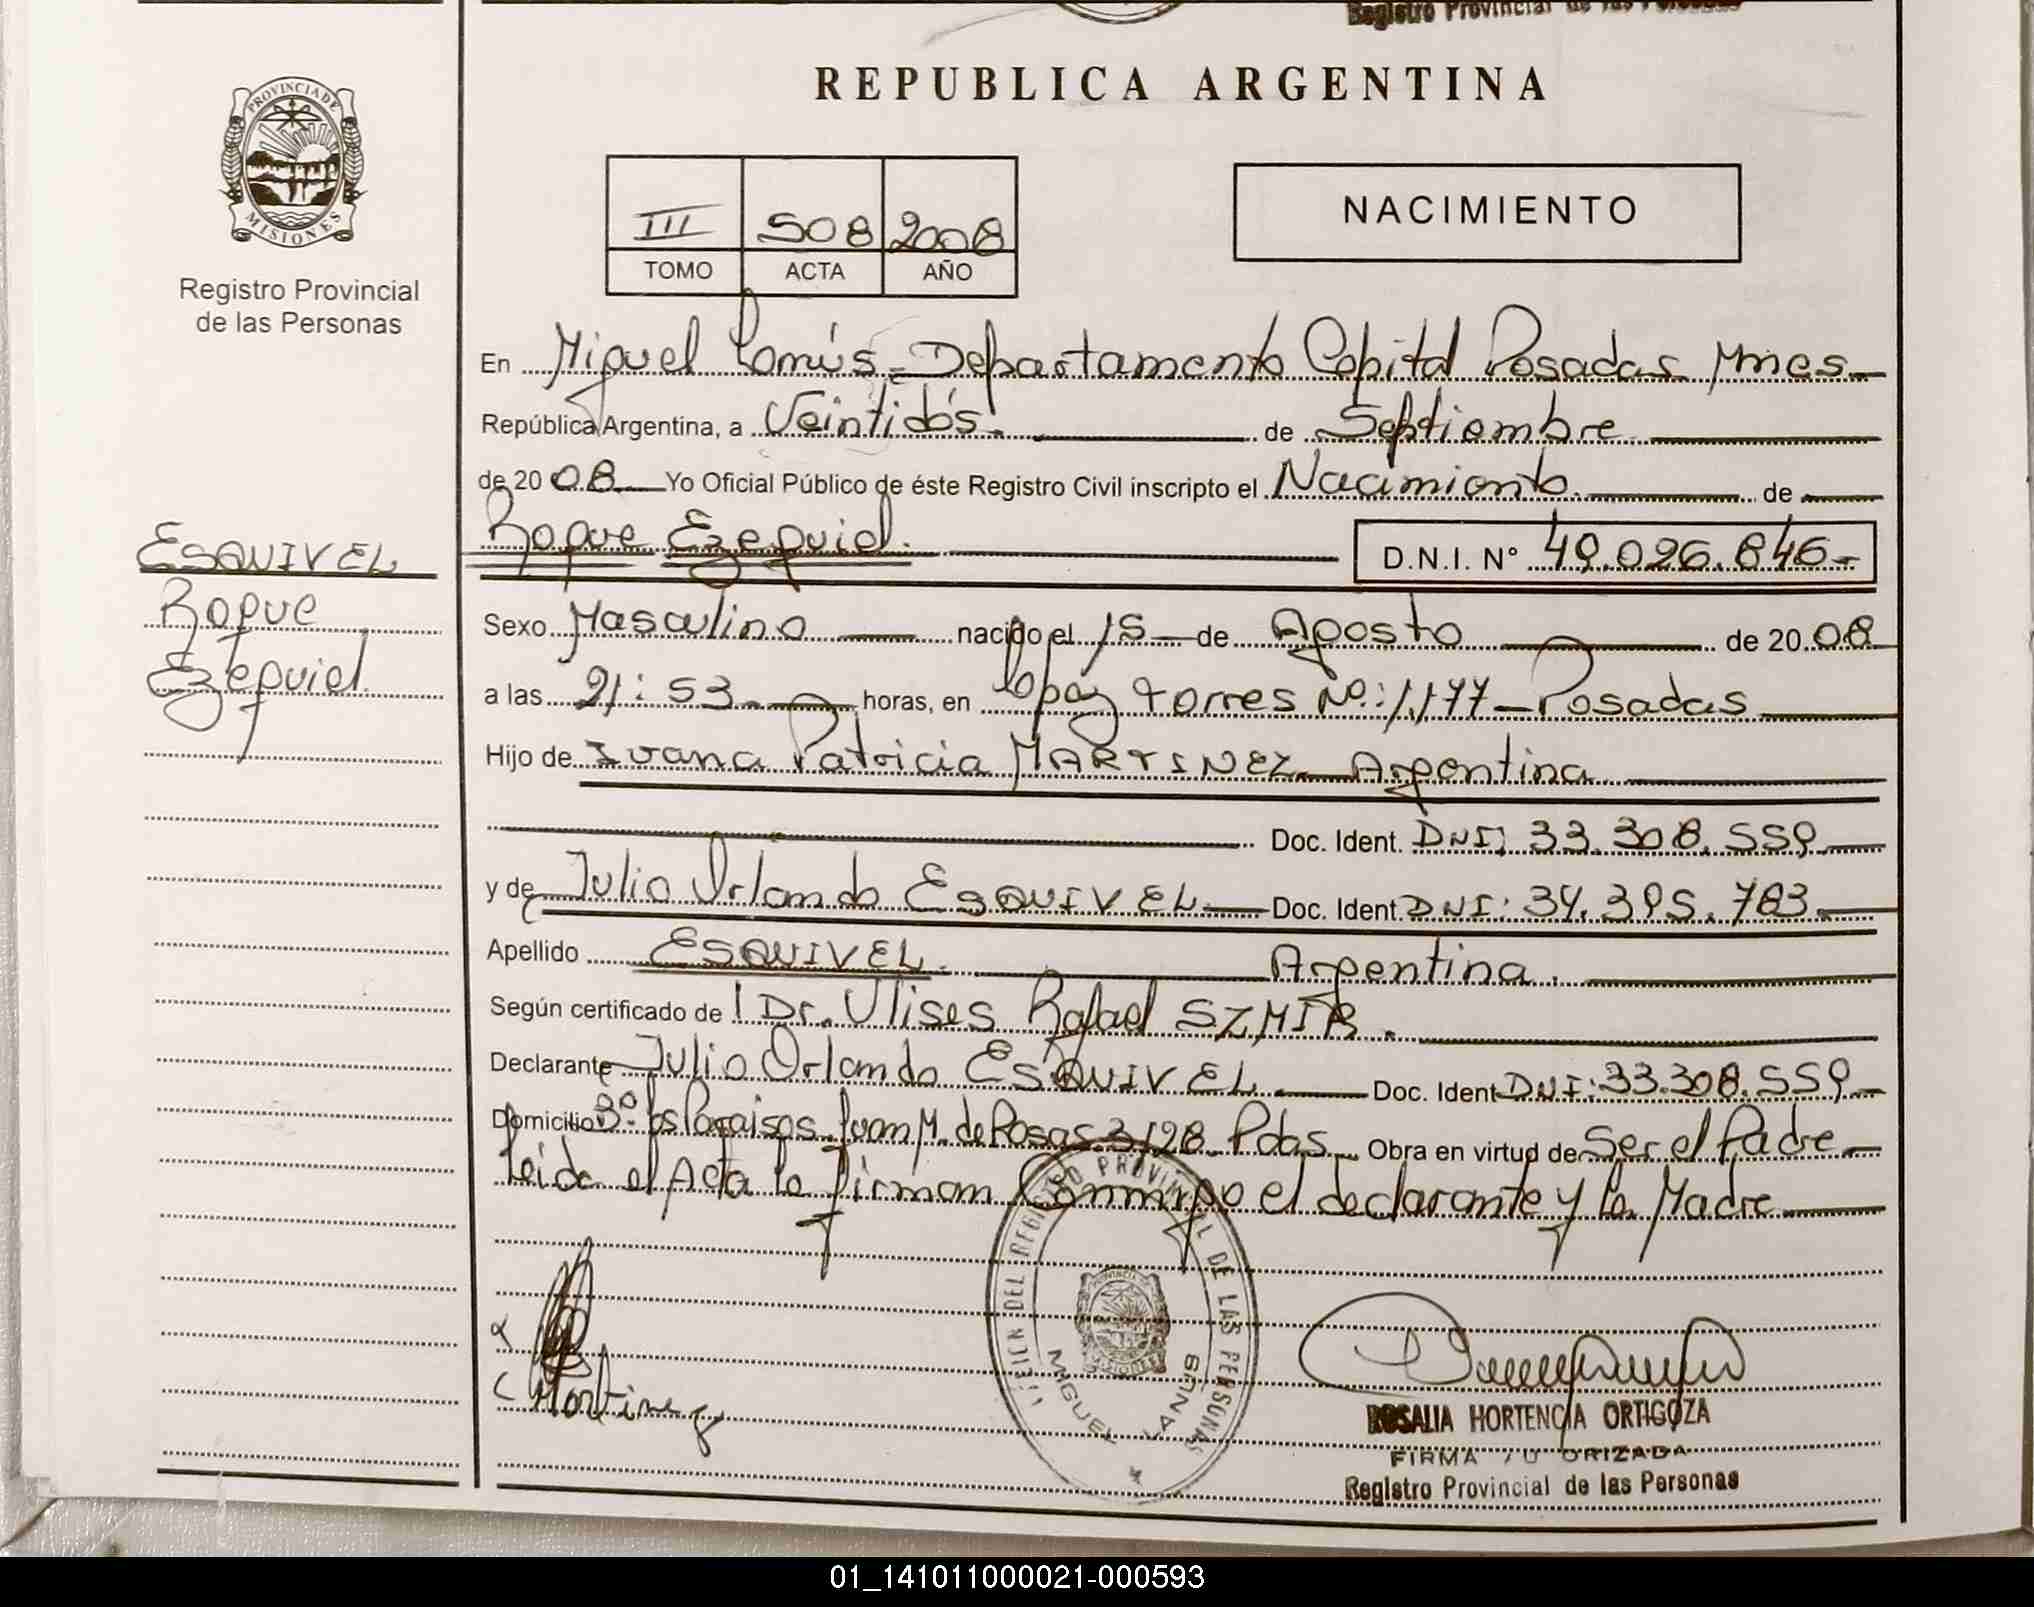 Registro Provincial de las Personas
PROVINCIA DE
MISIONES
Registro Provincial
de las Personas
REPUBLICA ARGENTINA
III 508 2008
TOMO ACTA AÑO
NACIMIENTO
En Miguel Lanús - Departamento Capital Posadas Mnes
República Argentina, a Veintidós de Septiembre
de 2008 Yo Oficial Público de éste Registro Civil inscripto el Nacimiento de
ESQUIVEL
Roque
Ezequiel
Roque Ezequiel. D.N.I. N° 49.026.846-
Sexo Masculino nacido el 15 de Agosto de 2008
a las 21:53 horas, en Lopez Torres Nº: 1.177 - Posadas
Hijo de Ivana Patricia MARTINEZ Argentina
Doc. Ident. DNI: 33.308.559
y de Julio Orlando ESQUIVEL Doc. Ident. DNI: 34.395.783
Apellido ESQUIVEL. Argentina.
Según certificado de Dr. Ulises Rafael
Declarante Julio Orlando ESQUIVEL Doc. Ident DNI: 33.308.559
Domicilio Bº Los Paraisos Juan M. de Rosas 3128 Pdas Obra en virtud de Ser el Padre
Leida el Acta la firman Conmigo el declarante y la Madre
DEL REGISTRO PROVINCIAL DE LAS PERSONAS
MIGUEL LANUS
Martinez
ROSALIA HORTENCIA ORTIGOZA
FIRMA AUTORIZADA
Registro Provincial de las Personas
01_141011000021-000593